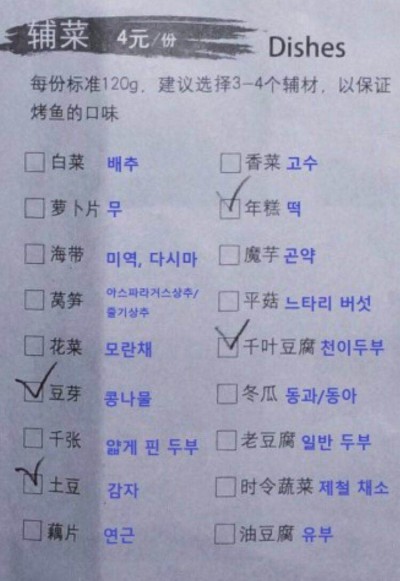 辅菜 4元/份 Dishes
每份标准120g，建议选择3-4个辅材，以保证
烤鱼的口味
白菜 배추 香菜 고수
萝卜片 무 年糕 떡
海带 미역, 다시마 魔芋 곤약
莴笋 아스파라거스상추/
줄기상추
平菇 느타리 버섯
花菜 모란채 千叶豆腐 천이두부
豆芽 콩나물 冬瓜 동과/동아
千张 얇게 핀 두부 老豆腐 일반 두부
土豆 감자 时令蔬菜 제철 채소
藕片 연근 油豆腐 유부